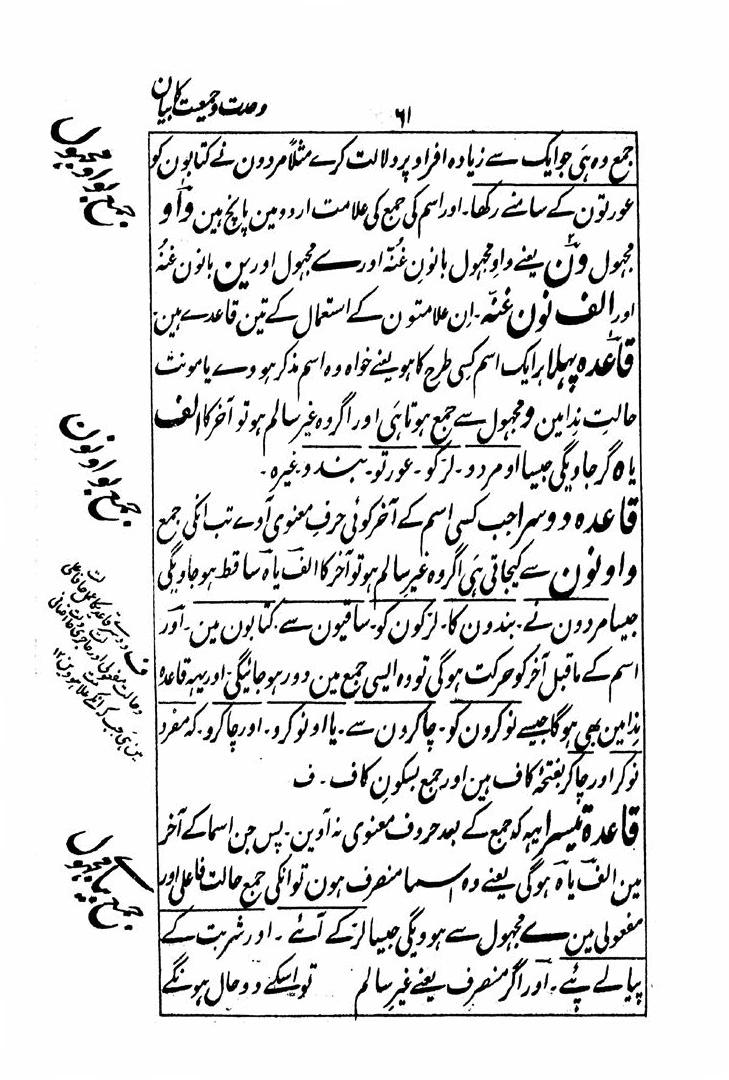 ۶۱
وحدت و جمعیت کا بیان
جمع وہ ہی جو ایک سے زیادہ افراد پر دلالت کرے مثلاً مردون نے کتابون کو
عورتون کے سامنے رکھا۔ اور اسم کی جمع کی علامت اردو مین پانچ ہین واو
مجہول ون یعنے واوِ مجہول بانونِ غنّہ اور ے مجہول اور ین بانون غنّہ
اور الف نون غنّہ۔ اِن علامتون کے استعمال کے تین قاعدے ہین
قاعدہ پہلا ہر ایک اسم کِسی طرح کا ہو یعنے خواہ وہ اسم مذکر ہووے یا مونث
حالتِ نِدا مین و مجہول سے جمع ہوتا ہی اور اگر وہ غیر سالم ہو تو آخر کا الف
یا ہ گر جاویگی جیسا او مردو۔ لڑکو۔ عورتو۔ بندو وغیرہ۔
قاعدہ دوسرا جب کسی اسم کے آخر کوئی حرفِ معنوی آوے تب انکی جمع
واو نون سے کیجاتی ہی اگر وہ غیرِ سالم ہو تو آخر کا الف یا ہ ساقط ہو جاویگی
جیسا مردون نے۔ بندون کا۔ لڑکون کو۔ ساقیون سے۔ کتابون مین۔ اور
اسم کے ماقبل آخر کو حرکت ہوگی تو وہ ایسی جمع مین دور ہو جائیگی اور یہہ قاعدہ
نِدا مین بھی ہوگا جیسے نوکرون کو۔ چاکرون سے۔ یا او نوکرو۔ اور چاکرو۔ کہ مفرد
نوکر اور چاکر بفتحۂ کاف ہین اور جمع بسکونِ کاف۔ ف
قاعدہ تیسرا یہہ کہ جمع کے بعد حروف معنوی نہ آوین۔ پس جن اسما کے آخر
مین الف یا ہ ہوگی یعنے وہ اسما منصرف ہون تو انکی جمع حالت فاعلی اور
مفعولی مین ے مجہول سے ہوویگی جیسا لڑکے آئے۔ اور شربت کے
پیالے پئے۔ اور اگر منصرف یعنے غیرِ سالم تو اسکے دو حال ہونگے
جمع بواو مجہول
جمع بواو نون
جمع بیاے مجہول